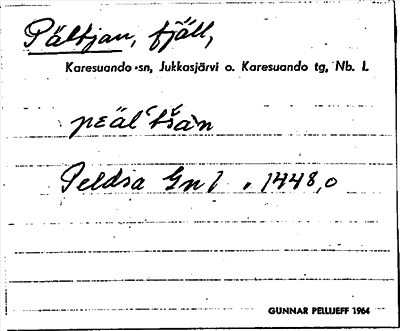 Pältjan, fjäll,
Karesuando sn, Jukkasjärvi o. Karesuando tg, Nb. l.
pɛälˈtšàn
Peldsa Gn 1 . 1448,0
GUNNAR PELLIJEFF 1964